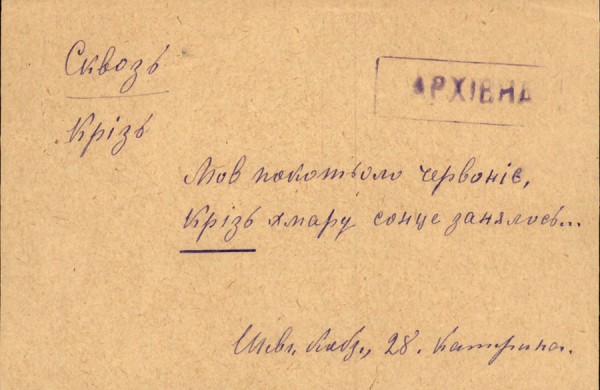 Сквозь
АРХІВНА
Крізь
Мов покотьоло червоніє,
Крізь хмару сонце занялось...
Шевч. Кобз., 28. Катерина.